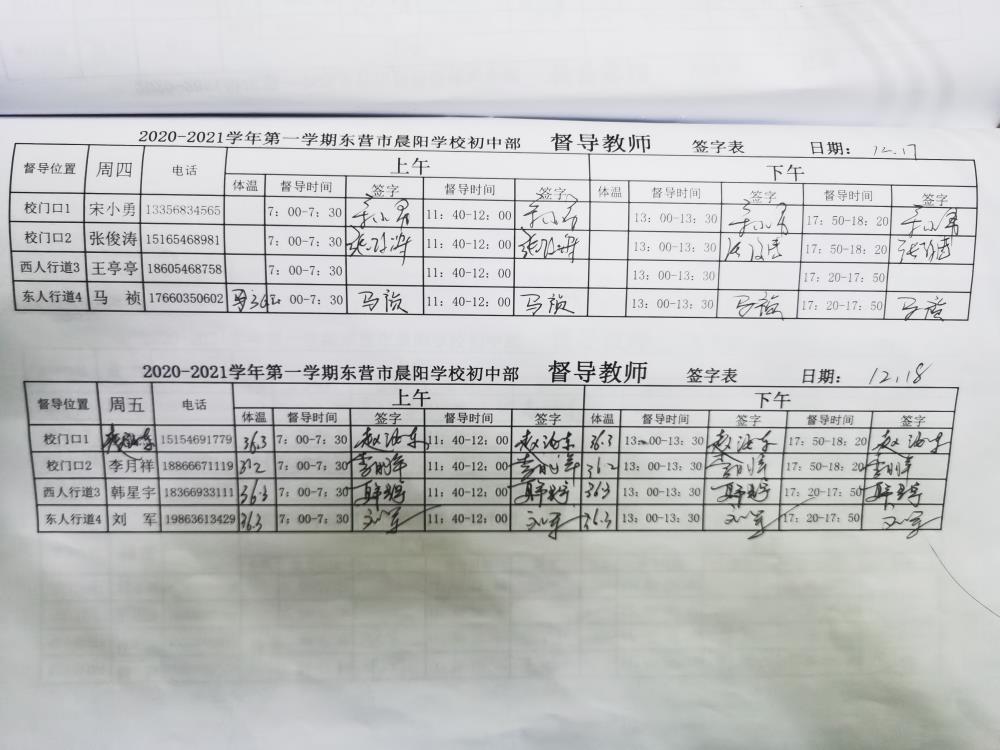 2020-2021学年第一学期东营市晨阳学校初中部 督导教师 签字表 日期： 12.17
督导位置 周四 电话 上午 下午
体温 督导时间 签字 督导时间 签字 体温 督导时间 签字 督导时间 签字
校门口1 宋小勇 13356834565 7：00-7：30 11：40-12：00 13：00-13：30 17：50-18：20
校门口2 张俊涛 15165468981 7：00-7：30 11：40-12：00 13：00-13：30 17：50-18：20
西人行道3 王亭亭 18605468758 7：00-7：30 11：40-12：00 13：00-13：30 17：20-17：50
东人行道4 马 祯 17660350602 7：00-7：30 马祯 11：40-12：00 马祯 13：00-13：30 马祯 17：20-17：50 马祯
2020-2021学年第一学期东营市晨阳学校初中部 督导教师 签字表 日期： 12.18
督导位置 周五 电话 上午 下午
体温 督导时间 签字 督导时间 签字 体温 督导时间 签字 督导时间 签字
校门口1 15154691779 36.3 7：00-7：30 11：40-12：00 36.3 13：00-13：30 17：50-18：20
校门口2 李月祥 18866671119 7：00-7：30 李月祥 11：40-12：00 李月祥 36.2 13：00-13：30 李月祥 17：50-18：20 李月祥
西人行道3 韩星宇 18366933111 36.3 7：00-7：30 韩星宇 11：40-12：00 韩星宇 36.3 13：00-13：30 韩星宇 17：20-17：50 韩星宇
东人行道4 刘 军 19863613429 36.3 7：00-7：30 刘军 11：40-12：00 刘军 36.3 13：00-13：30 刘军 17：20-17：50 刘军